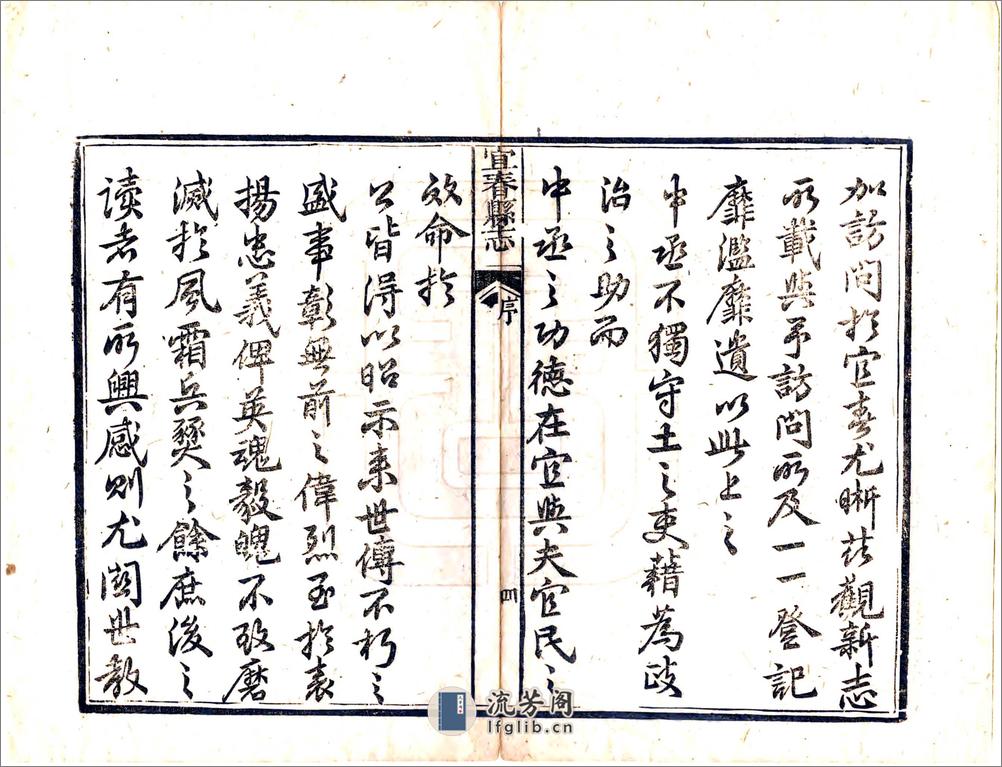 加訪問於宜春尤晰茲觀新志
所載與予訪問所及一一登記
靡濫靡遺以此上之
中丞不獨守土之吏藉為政
治之助而
中丞之功德在宜與夫官民之
宜春縣志
序
四
效命於
公皆得以昭示來世傳不朽之
盛事彰無前之偉烈至於表
揚忠義俾英魂毅魄不致磨
滅於風霜兵燹之餘庶後之
读者有所興感則尤關世教
流芳阁
lfglib.cn